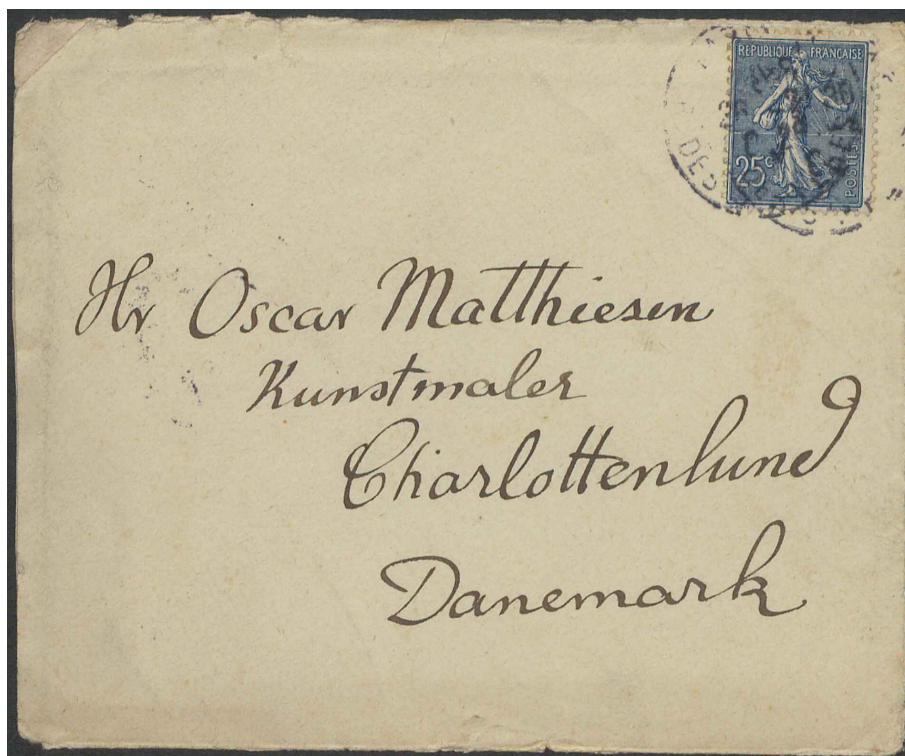 RÉPUBLIQUE FRANÇAISE
25c
POSTES
Hr Oscar Matthiesen
Kunstmaler
Charlottenlund
Danemark